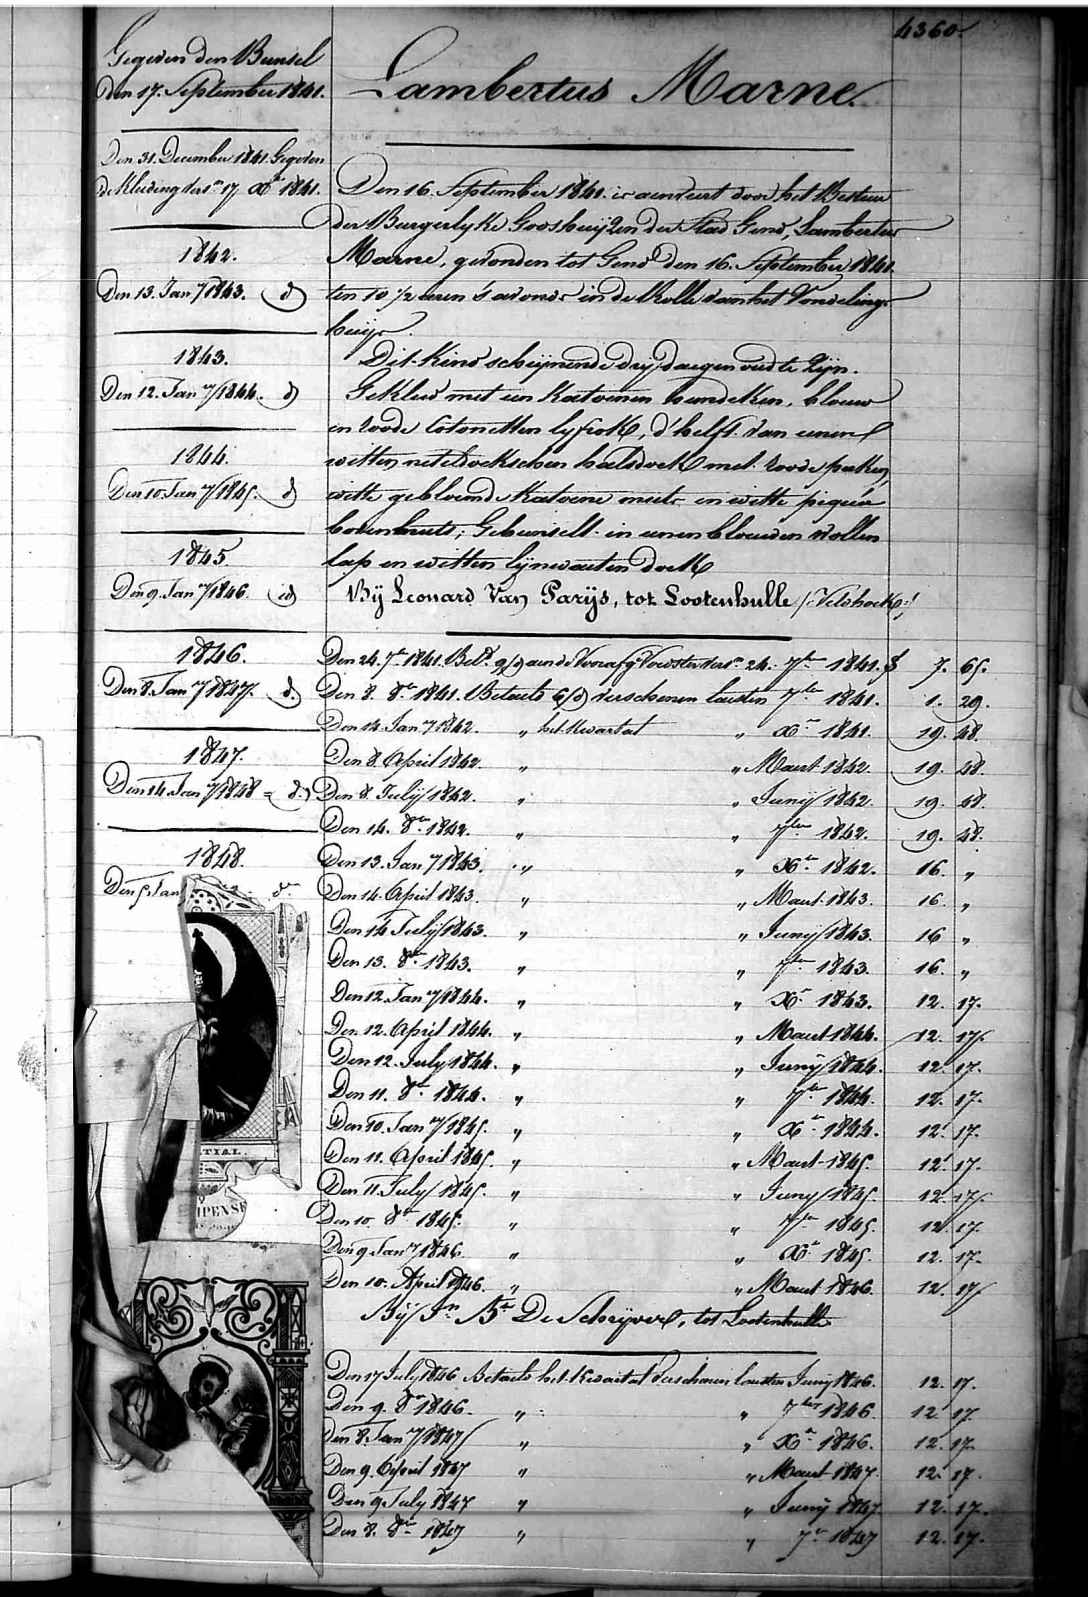 4360
Gegeven den Bunsel
den 17. September 1841.
Lambertus Marne.
Den 31. December 1841. Gegeven
de Kleding vers.n 17. Xb 1841.
Den 16. September 1841. is aenveert door het Bestuur
der Burgerlyke Godshuijzen der Stad Gend, Lambertus
1842.
Marne, gevonden tot Gend den 16. September 1841.
Den 13. Jan.y 1843. d
ten 10 1/2 uren 's avonds in de Rolle van het Vondelings
huijs.
1843.
Dit Kind scheijnende drij daegen oud te zijn.
Den 12. Jan.y 1844. d
Gekleed met een Katoenen hemdeken, blauw
en roode Cotonetten lyfrok, d'helft van eenen
1844.
witten neteldoekschen halsdoek met roode perken,
Den 10 Jan.y 1845. d
witte gebloemde Katoene muts en witte piquée
bovenmuts; Gebunselt in eenen blauwen wollen
1845.
lap en witten lijnwaeten doek
Den 9. Jan.y 1846. id
Bÿ Leonard Van Parÿs, tot Lootenhulle /:Veldhoek:/
1846.
Den 24. 7.r 1841. Bet.d 9/d aen de Voorafg. Voedster vers.n 24. 7.ber 1841. f 7. 65.
Den 8. Jan.y 1847. d.
Den 8. 8.r 1841. Betaeld 6/d verschenen laesten 7.ber 1841. 1. 29.
Den 14. Jan.y 1842. " het Kwartaal " X.r 1841. 19. 48.
1847.
Den 8. April 1842. " " Maert 1842. 19. 48.
Den 14. Jan.y 1848 = d.
Den 8. Julij 1842. " " Junij 1842. 19. 48.
Den 14. 8.er 1842. " " 7.ber 1842. 19. 48.
1848.
Den 13. Jan.y 1843. " " X.r 1842. 16. "
Den 5. Jan
Den 14. April 1843. " " Maert 1843. 16. "
Den 14 Julij 1843. " " Junij 1843. 16 "
Den 13. 8.er 1843. " " 7.ber 1843. 16. "
Den 12. Jan.y 1844. " " X.r 1843. 12. 17.
Den 12. April 1844. " " Maert 1844. 12. 17.
Den 12. July 1844. " " Junij 1844. 12. 17.
Den 11. 8.r 1844. " " 7.ber 1844. 12. 17.
Den 10. Jan.y 1845. " " X.r 1844. 12. 17.
Den 11. April 1845. " " Maert 1845. 12. 17.
TIAL
Den 11. July 1845. " " Juny 1845. 12. 17.
IPENSE
Den 10. 8.r 1845. " " 7.er 1845. 12. 17.
Den 9 Jan.y 1846. " " X.r 1845. 12. 17.
Den 10. April 1846. " " Maert 1846. 12. 17
Bij J.n B.te De Schrijver, tot Lootenhulle
Den 17 July 1846 Betaeld het Kwartaal verschenen laesten Junij 1846. 12. 17.
Den 9. 8.r 1846. " " 7.ber 1846. 12 17.
Den 8. Jan.y 1847 " " X.r 1846. 12. 17.
Den 9. April 1847 " " Maert 1847. 12. 17.
Den 9 July 1847 " " Junij 1847. 12. 17.
Den 8. 8.er 1847 " " 7.r 1847 12. 17.